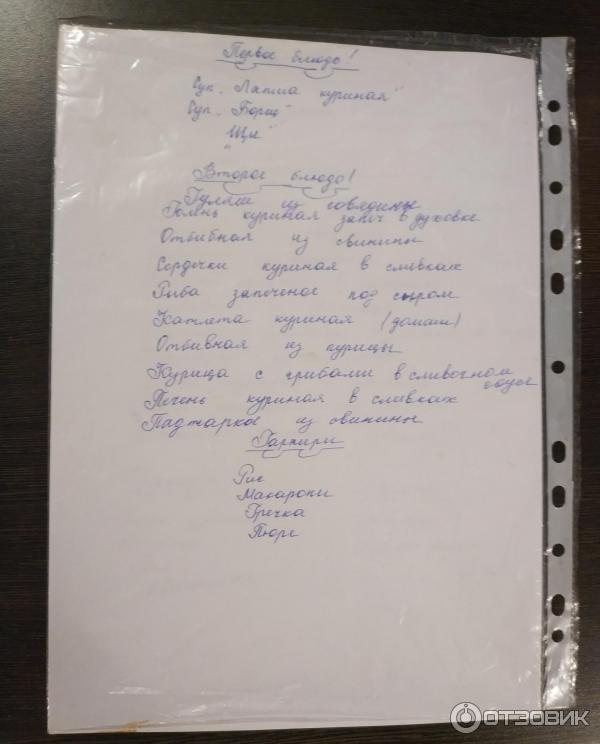 Первое блюдо!
Суп „Лапша куриная"
Суп „Борщ"
„Щи"
Второе блюдо!
Гуляш из говядины
Голень куриная запеч в духовке
Отбибная из свинины
Сердечки куриная в сливках
Рыба запеченое под сыром
Катлета куриная (домаш)
Отбивная из курицы
Курица с грибами в сливочном
соусе
Печень куриная в сливках
Паджаркое из свинины
Гарниры
Рис
Макарони
Гречка
Пюре
ОТЗОВИК